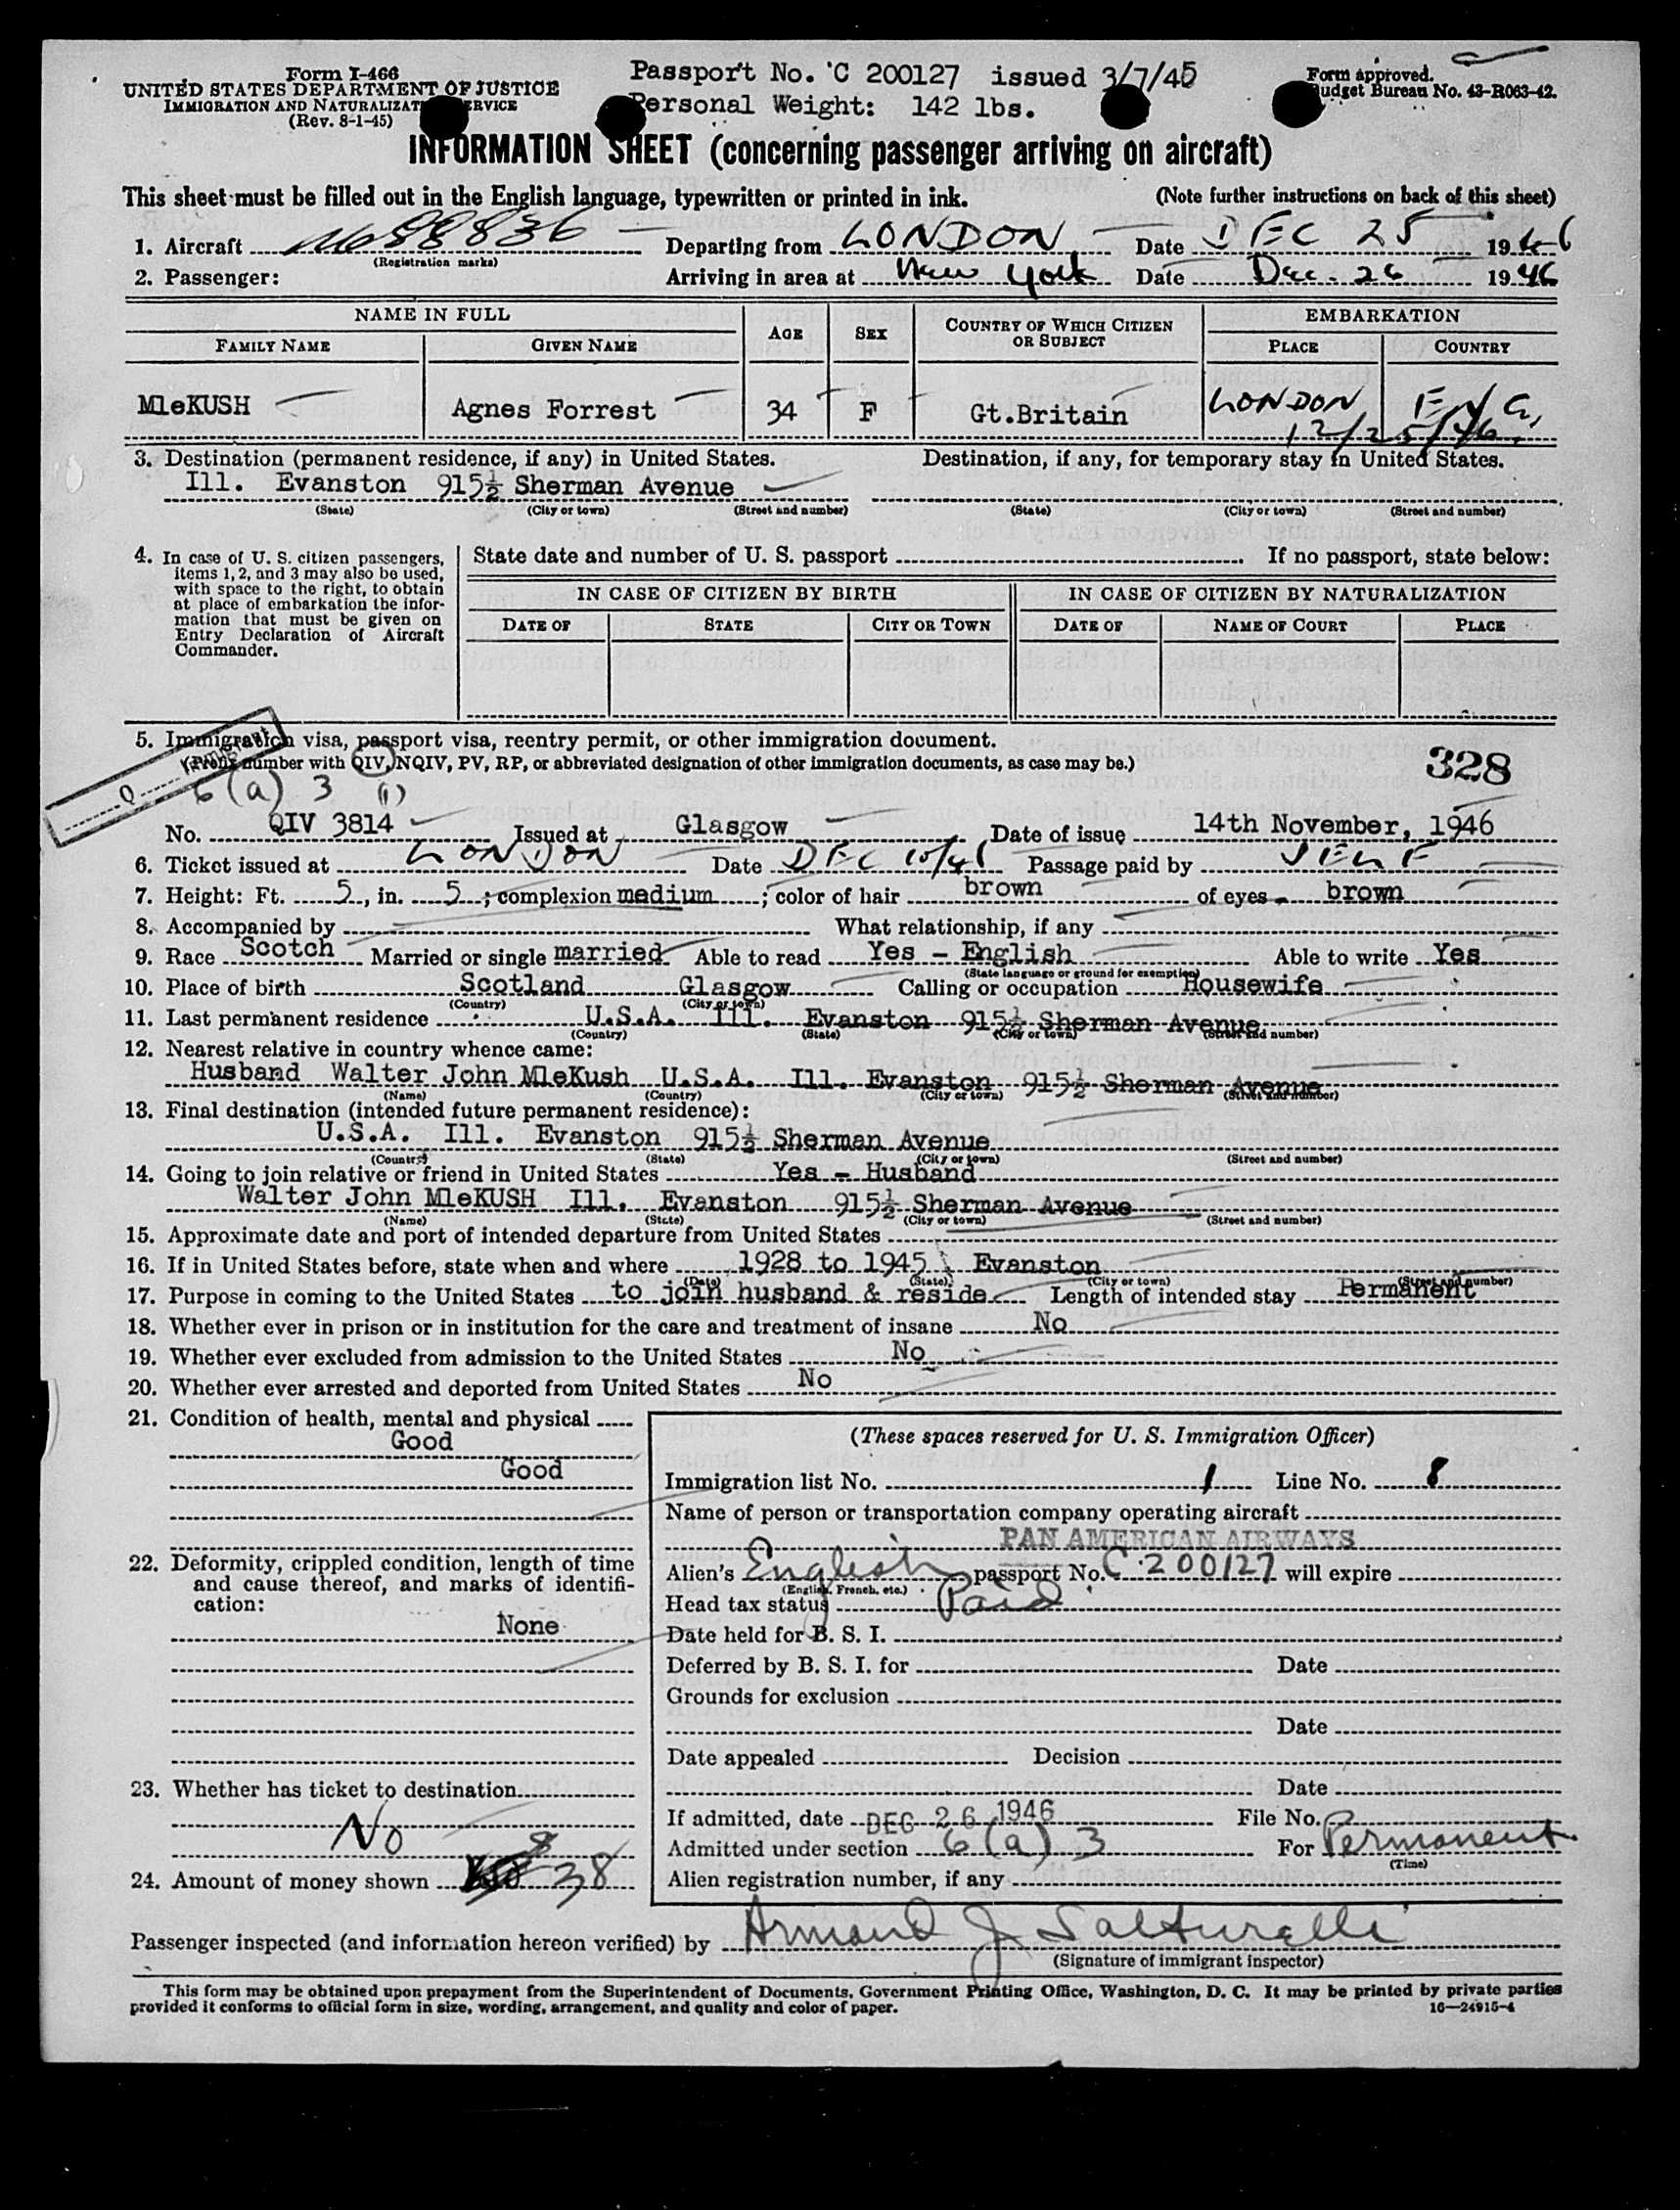 Form I-466
UNITED STATES DEPARTMENT OF JUSTICE
IMMIGRATION AND NATURALIZATION SERVICE
(Rev. 8-1-45)
Passport No. C 200127 issued 3/7/45
Personal Weight: 142 lbs.
Form approved.
Budget Bureau No. 43-R063-42.
INFORMATION SHEET (concerning passenger arriving on aircraft)
This sheet must be filled out in the English language, typewritten or printed in ink. (Note further instructions on back of this sheet)
1. Aircraft 88836 Departing from LONDON Date DEC 25 1946
(Registration marks)
2. Passenger: Arriving in area at New York Date Dec. 26 1946
NAME IN FULL AGE SEX COUNTRY OF WHICH CITIZEN OR SUBJECT EMBARKATION
FAMILY NAME GIVEN NAME PLACE COUNTRY
MleKUSH Agnes Forrest 34 F Gt.Britain LONDON ENG.
12/25/46
3. Destination (permanent residence, if any) in United States. Destination, if any, for temporary stay in United States.
Ill. Evanston 915½ Sherman Avenue
(State) (City or town) (Street and number) (State) (City or town) (Street and number)
4. In case of U. S. citizen passengers, items 1, 2, and 3 may also be used, with space to the right, to obtain at place of embarkation the information that must be given on Entry Declaration of Aircraft Commander.
State date and number of U. S. passport If no passport, state below:
IN CASE OF CITIZEN BY BIRTH IN CASE OF CITIZEN BY NATURALIZATION
DATE OF STATE CITY OR TOWN DATE OF NAME OF COURT PLACE
5. Immigration visa, passport visa, reentry permit, or other immigration document.
(Prefix number with QIV, NQIV, PV, RP, or abbreviated designation of other immigration documents, as case may be.)
328
6(a) 3 (1)
No. QIV 3814 Issued at Glasgow Date of issue 14th November, 1946
6. Ticket issued at LONDON Date DEC 10/46 Passage paid by SELF
7. Height: Ft. 5, in. 5; complexion medium; color of hair brown of eyes brown
8. Accompanied by What relationship, if any
9. Race Scotch Married or single married Able to read Yes - English Able to write Yes
(State language or ground for exemption)
10. Place of birth Scotland Glasgow Calling or occupation Housewife
(Country) (City or town)
11. Last permanent residence U.S.A. Ill. Evanston 915½ Sherman Avenue
(Country) (State) (City or town) (Street and number)
12. Nearest relative in country whence came:
Husband Walter John MleKush U.S.A. Ill. Evanston 915½ Sherman Avenue
(Name) (Country) (City or town) (Street and number)
13. Final destination (intended future permanent residence):
U.S.A. Ill. Evanston 915½ Sherman Avenue
(Country) (State) (City or town) (Street and number)
14. Going to join relative or friend in United States Yes - Husband
Walter John MleKUSH Ill. Evanston 915½ Sherman Avenue
(Name) (State) (City or town) (Street and number)
15. Approximate date and port of intended departure from United States
16. If in United States before, state when and where 1928 to 1945 Evanston
(Date) (State) (City or town) (Street and number)
17. Purpose in coming to the United States to join husband & reside Length of intended stay Permanent
18. Whether ever in prison or in institution for the care and treatment of insane No
19. Whether ever excluded from admission to the United States No
20. Whether ever arrested and deported from United States No
21. Condition of health, mental and physical
Good
Good
22. Deformity, crippled condition, length of time and cause thereof, and marks of identification:
None
23. Whether has ticket to destination
No
24. Amount of money shown 38
(These spaces reserved for U. S. Immigration Officer)
Immigration list No. 1 Line No. 8
Name of person or transportation company operating aircraft
PAN AMERICAN AIRWAYS
Alien's English passport No. C 200127 will expire
(English, French, etc.)
Head tax status Paid
Date held for B. S. I.
Deferred by B. S. I. for Date
Grounds for exclusion
Date
Date appealed Decision
Date
If admitted, date DEC 26 1946 File No.
Admitted under section 6(a) 3 For Permanent
(Time)
Alien registration number, if any
Passenger inspected (and information hereon verified) by Armand J Salturelli
(Signature of immigrant inspector)
This form may be obtained upon prepayment from the Superintendent of Documents, Government Printing Office, Washington, D. C. It may be printed by private parties
provided it conforms to official form in size, wording, arrangement, and quality and color of paper. 16—24915-4